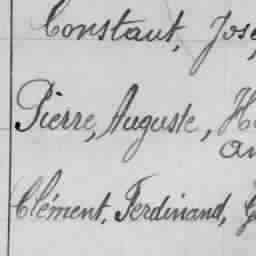 Constant, José
Pierre, Auguste, H
an
Clément, Ferdinand, G